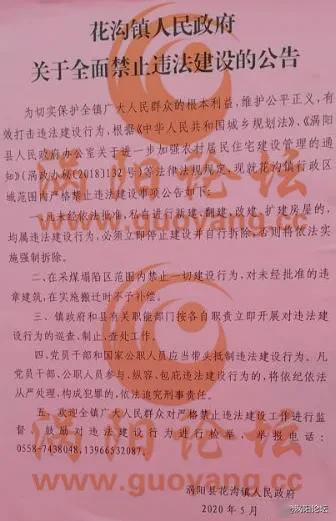 花沟镇人民政府
关于全面禁止违法建设的公告
为切实保护全镇广大人民群众的根本利益，维护公平正义，有
效打击违法建设行为，根据《中华人民共和国城乡规划法》、《涡阳
县人民政府办公室关于进一步加强农村居民住宅建设管理的通
知》（涡政办秘〔2018〕132号）等法律法规规定，现就花沟镇行政区
域范围内严格禁止违法建设事项公告如下：
一、凡未经依法批准，私自进行新建、翻建、改建、扩建房屋的，
均属违法建设行为，必须立即停止建设并自行拆除，否则将依法实
施强制拆除。
二、在采煤塌陷区范围内禁止一切建设行为，对未经批准的违
章建筑，在实施搬迁时不予补偿。
三、镇政府和县有关职能部门按各自职责立即开展对违法建
设行为的巡查、制止、查处工作。
四、党员干部和国家公职人员应当带头抵制违法建设行为。凡
党员干部、公职人员参与、纵容、包庇违法建设行为的，将依纪依法
从严处理，构成犯罪的，依法追究刑事责任。
五、欢迎全镇广大人民群众对严格禁止违法建设工作进行监
督，鼓励对违法建设行为进行检举，举报电话：
0558-7438048，13966532087。
涡阳县花沟镇人民政府
2020年5月
涡阳论坛
guoyang.cc
涡阳论坛